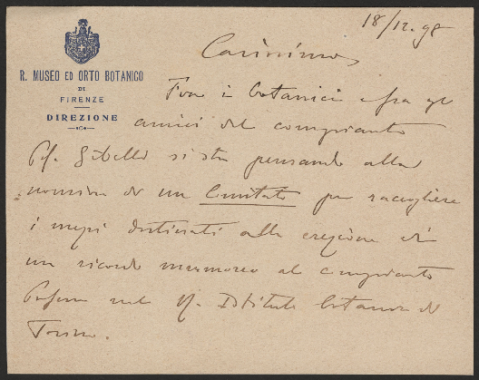 18/12.98
R. MUSEO ED ORTO BOTANICO
DI
FIRENZE
DIREZIONE
Carissimo,
Fra i botanici e fra gli
amici del compianto
Prof. Gibelli si sta pensando alla
nomina di un Comitato per raccogliere
i mezzi destinati alla erezione di
un ricordo marmoreo al compianto
Professore nel R. Istituto botanico di
Torino.